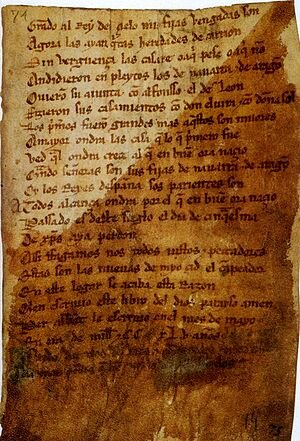 71
Grado al Rey del çielo mis fijas vengadas son
Agora las ayan q̃tas heredades de carrion
Sin verguença las casare o aq̃ pese o aq̃ no
Andidieron en pleytos los de nauarra & de arago
Ouierõ su aiunta cõ alfonsso el de Leon
Fizieron sus casamientos cõ don eluira & cõ doña sol
Los p̃meros fuerõ grandes mas aq̃stos son miiores
A mayor ondra las casa q̃ lo q̃ p̃mero fue
Ved q̃l ondra creçe al q̃ en buẽ ora naçio
Q̃ndo señoras son sus fijas de nauarra & de aragõ
Oy los Reyes despaña sos parientes son
A todos alcança ondra por el q̃ en buẽ ora naçio
Passado es deste sieglo el dia de cinq̃esma
De xp̃s aya perdon
Assi ffagamos nos todos iustos & peccadores
Estas son las nueuas de myo çid el canpeador
En este logar se acaba esta Razon
Q̃en escriuio este libro del dios parayso amen
Per abbat le escriuio en el mes de mayo
En era de mill & CC xL.v. años